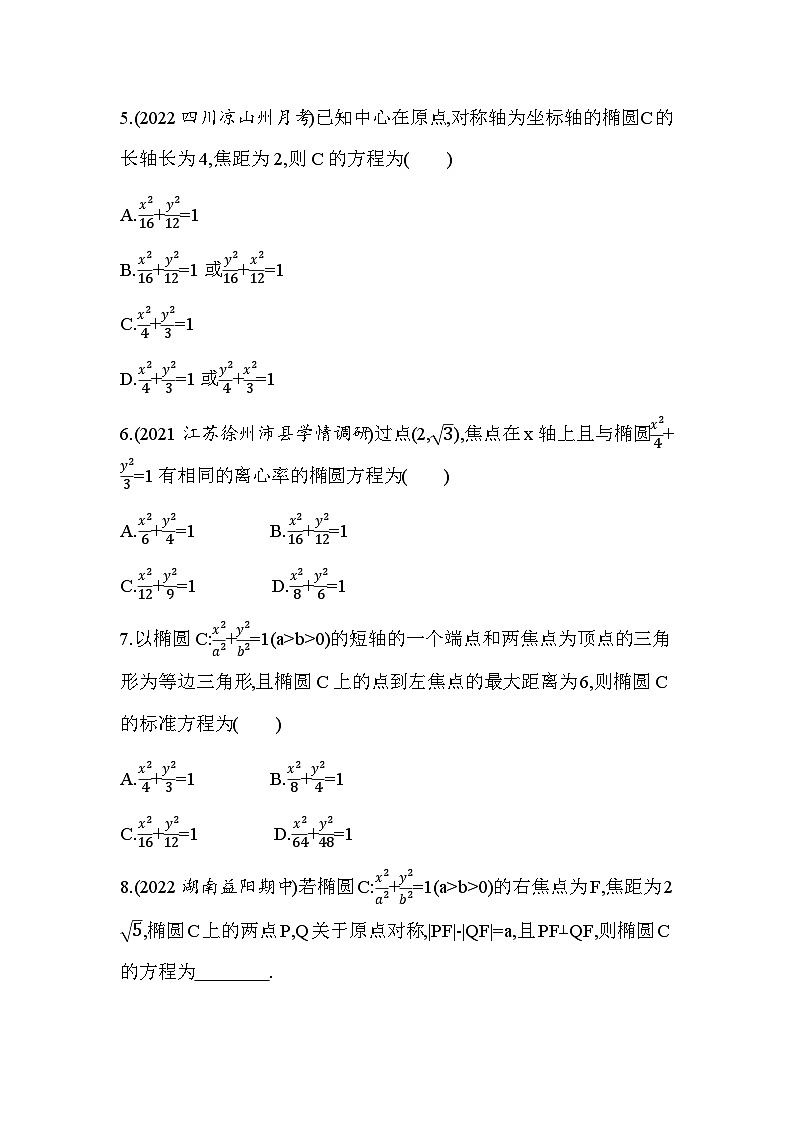 5.(2022四川凉山州月考)已知中心在原点,对称轴为坐标轴的椭圆C的
长轴长为4,焦距为2,则C的方程为(　　)
A.x²/16+y²/12=1
B.x²/16+y²/12=1 或y²/16+x²/12=1
C.x²/4+y²/3=1
D.x²/4+y²/3=1 或y²/4+x²/3=1
6.(2021江苏徐州沛县学情调研)过点(2,√3),焦点在x轴上且与椭圆x²/4+
y²/3=1有相同的离心率的椭圆方程为(　　)
A.x²/6+y²/4=1　　B.x²/16+y²/12=1
C.x²/12+y²/9=1　　D.x²/8+y²/6=1
7.以椭圆C:x²/a²+y²/b²=1(a>b>0)的短轴的一个端点和两焦点为顶点的三角
形为等边三角形,且椭圆C上的点到左焦点的最大距离为6,则椭圆C
的标准方程为(　　)
A.x²/4+y²/3=1　　B.x²/8+y²/4=1
C.x²/16+y²/12=1　　D.x²/64+y²/48=1
8.(2022湖南益阳期中)若椭圆C:x²/a²+y²/b²=1(a>b>0)的右焦点为F,焦距为2
√5,椭圆C上的两点P,Q关于原点对称,|PF|-|QF|=a,且PF⊥QF,则椭圆C
的方程为________.